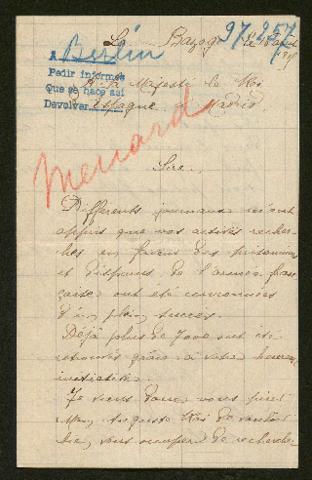 La Bazoge le
97.257
A Berlin
Pedir informes
Que se hace así
Devolver
A Sa Majesté le Roi
d'Espagne à Madrid
Menard
Sire,
Différents journaux m'ont
appris que vos actives recher-
ches en faveur des prisonniers
et disparus de l'armée fran-
çaise ont été couronnées
d'un plein succès.
Déjà plus de 7000 ont été
retrouvés grâce à votre heureuse
initiative.
Je viens donc vous prier
auguste Roi de vouloir
bien vous occuper de rechercher